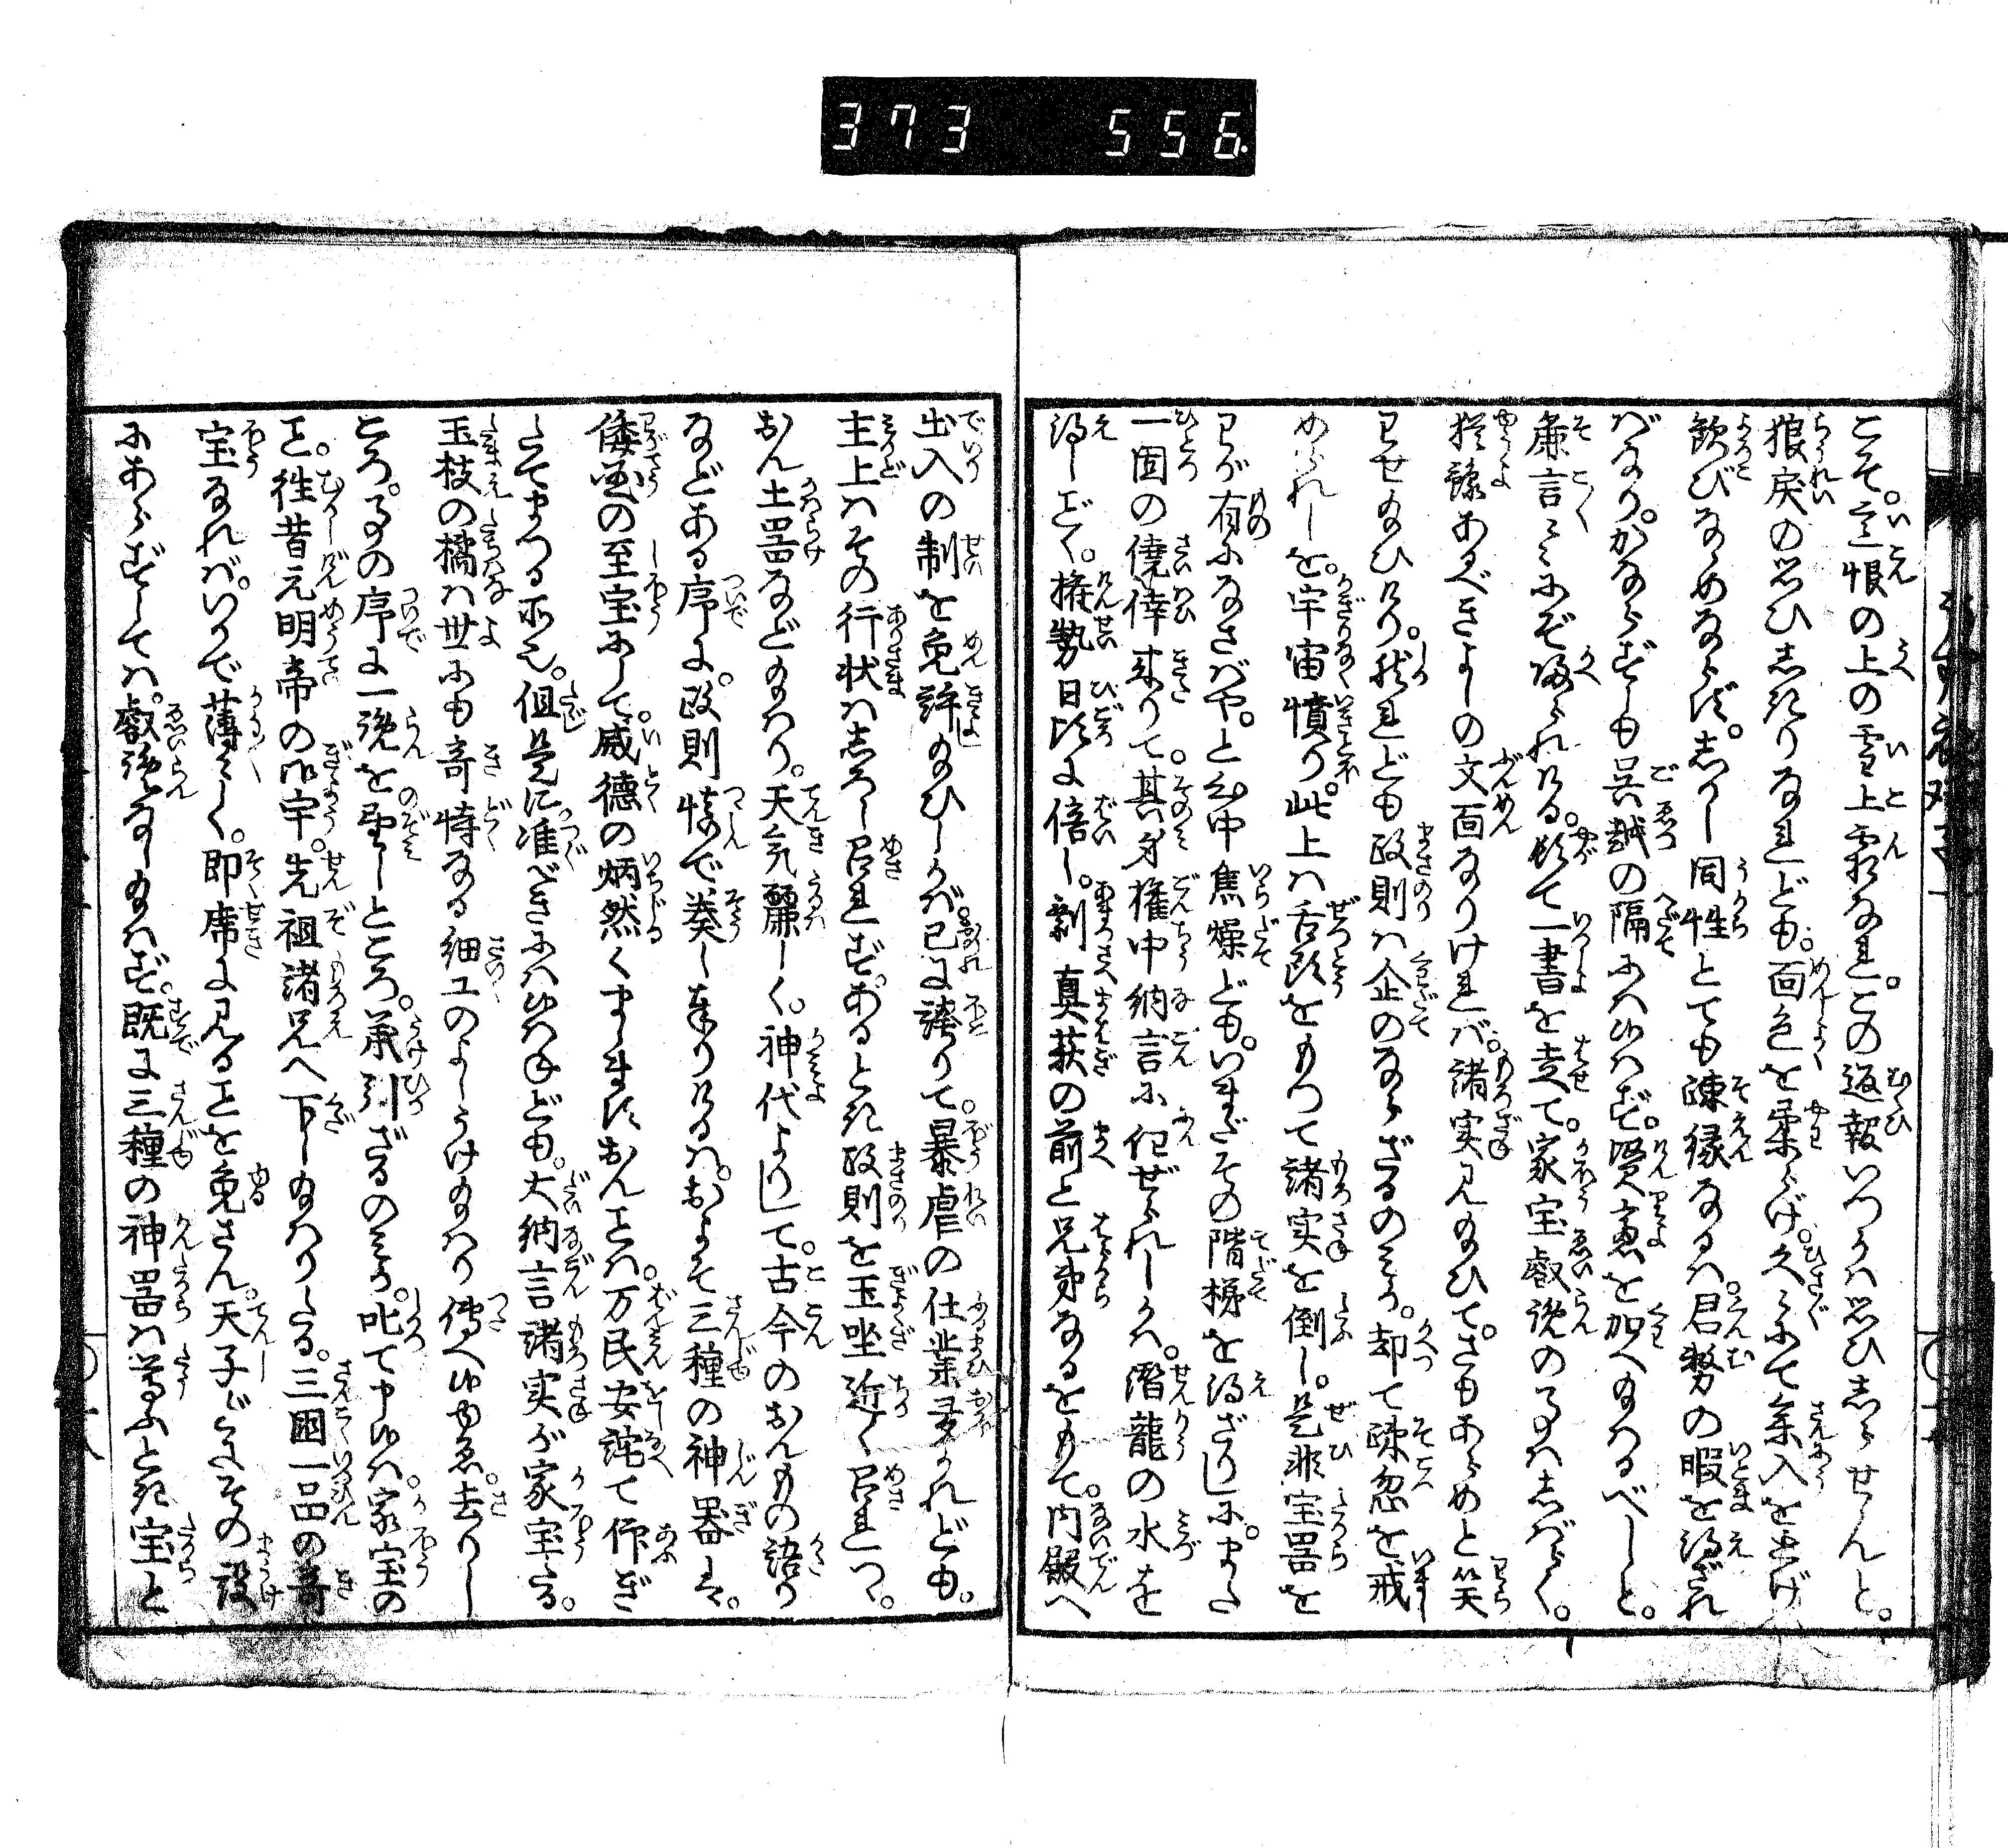 373 556
こそ。遺恨の上の雪上霜なれ。この返報いつかは思ひしらせんと。
狼戻の思ひ志きりなれども。面色を柔らげ。久々にて参入を遂げ
歓びなゝめならず。志かし同性とても疎縁なるは。君務の暇を得ざれ
ばなり。かならずしも呉越の隔には候はず。賢慮を加へ給はるべしと。
麁言〻にぞ帰られける。頓て一書を走て。家宝叡覧の事はしばらく。
猶豫あるべきよしの文面なりければ。諸実見給ひて。さもあらめと笑
わせ給ひけり。然れども政則は企のならざるのみか。却て疎忽を戒
められしを。宇宙憤り。此上は舌頭をもつて諸実を倒し。是非宝器を
わが有になさばや。と心中焦燥ども。いまだその階梯を得ざりしに。また
一固の僥倖来りて。其身権中納言に任ぜられしかば。潜龍の水を
得しごとく。権勢日比に倍し。剰真萩の前と兄弟なるをもて。内殿へ
出入の制を免許給ひしかば。己に誇りて。暴虐の仕業多かれども。
主上はその行状はしろし召れず。あるとき政則を玉坐近く召れつゝ。
おん土器など給はり。天気麗しく。神代よりして。古今のおんもの語り
などある序に。政則慎で奏し奉りけるは。およそ三種の神器は。
倭国の至宝にして。威徳の炳然くましますおんことは。万民安詫て仰ぎ
たてまつる所也。但是に准べきには候はねども。大納言諸実が家宝たる。
玉枝の橘は世にも奇特なる細工のよしうけ給はり傳へ候ゆゑ。去りし
ころ。事の序に一覧を望しところ。承引ざるのみか。叱て申候は。家宝の
こと。往昔元明帝の御宇。先祖諸兄へ下し給はりたる。三国一品の奇
宝なれば。いかで薄々しく。即席に見ることを免さん。天子だにその設
にあらずしては。叡覧なし給はず。既に三種の神器は尊ふとき宝と